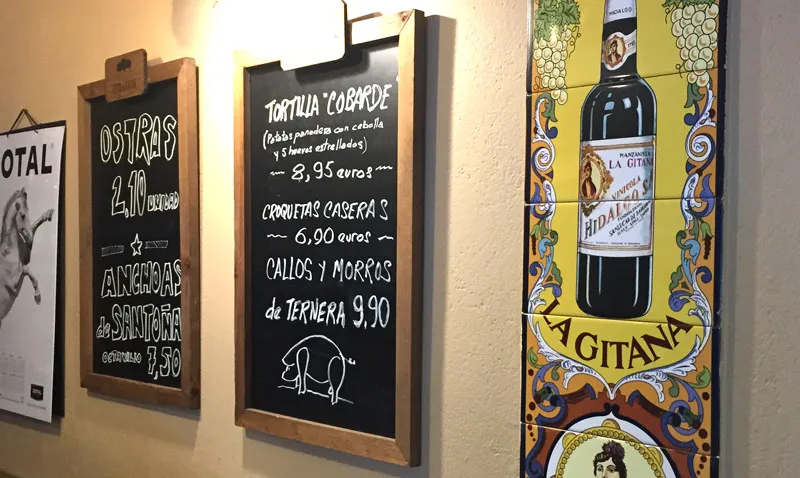 OTAL
OSTRAS
2,10 UNIDAD
ANCHOAS
de SANTOÑA
OCTAVILLO 7,50
TORTILLA "COBARDE"
(Patatas panadera con cebolla
y 5 huevos estrellados)
~ 8,95 euros ~
CROQUETAS CASERAS
~ 6,90 euros ~
CALLOS Y MORROS
de TERNERA 9,90
HIDALGO
MANZANILLA
LA GITANA
VINICOLA
HIDALGO S.A
SANLUCAR DE BARRAMEDA
LA GITANA